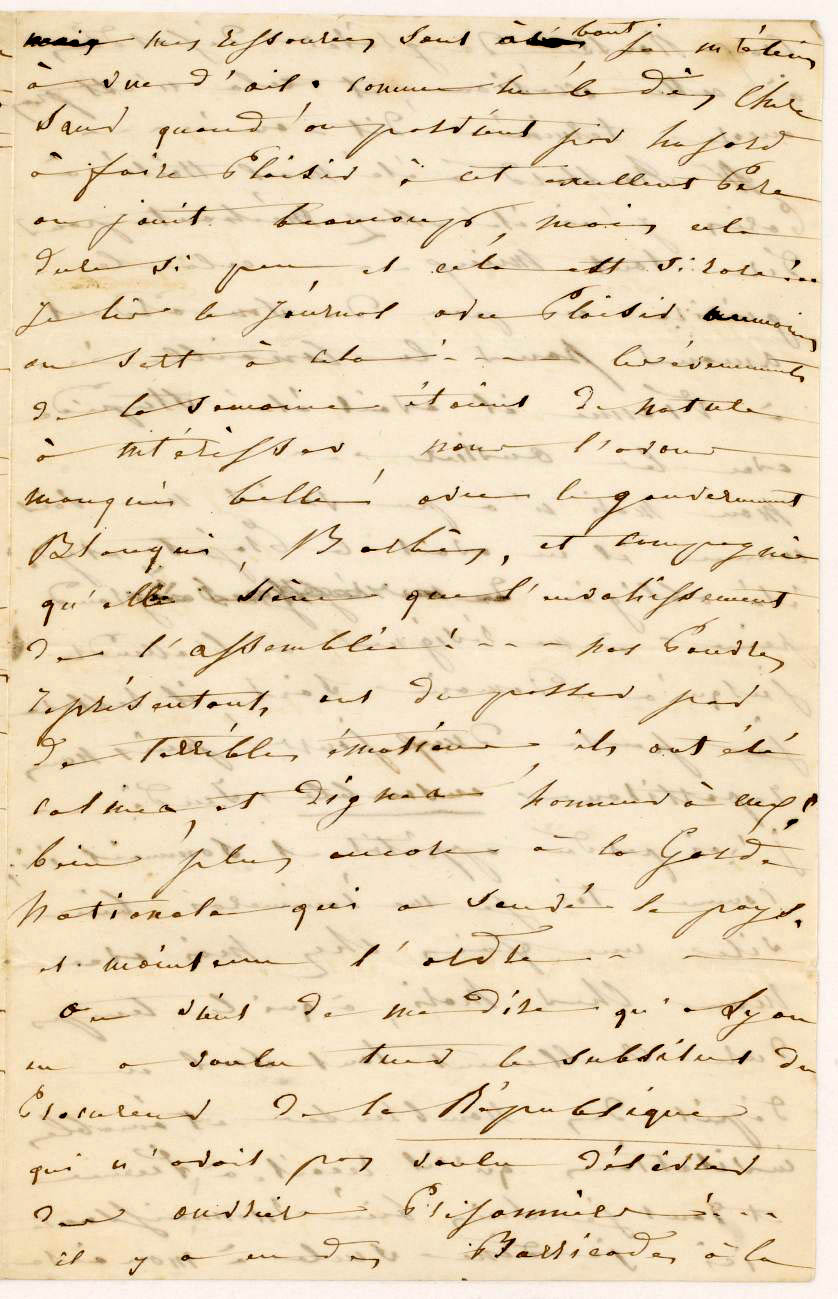 mes ressources sont à bout je m'éteins
à vue d'œil. comme me le dis, chere
Sœur quand on parvient par hasard
à faire Plaisir à cet excellent Pere
on jouit beaucoup, mais cela
dure si peu, et cela est si rare ...
Je lis le Journal avec Plaisir aumoins
on sert à cela ! - - - les évenements
de la semaine étaient de nature
à intéresser, nous l'avons
manqués belle ! avec le gouvernement
Blanqui, Barbès, et compagnie
qu'elle scène que l'envahissement
de l'assemblée ! - - - nos Pauvres
représentants, ont du passer par
de terribles émotions, ils ont été
calmes, et dignes, honneur à eux !
bien plus encore à la Garde
Nationale qui a sauvée le pays,
et maintenu l'ordre - - -
On vient de me dire qu'a Lyon
on a voulu tuer le substitut du
Procureur de la République
qui n'avait pas voulu délivrer
des ouvriers Prisonniers ! - - -
il y a eu des Barricades à la